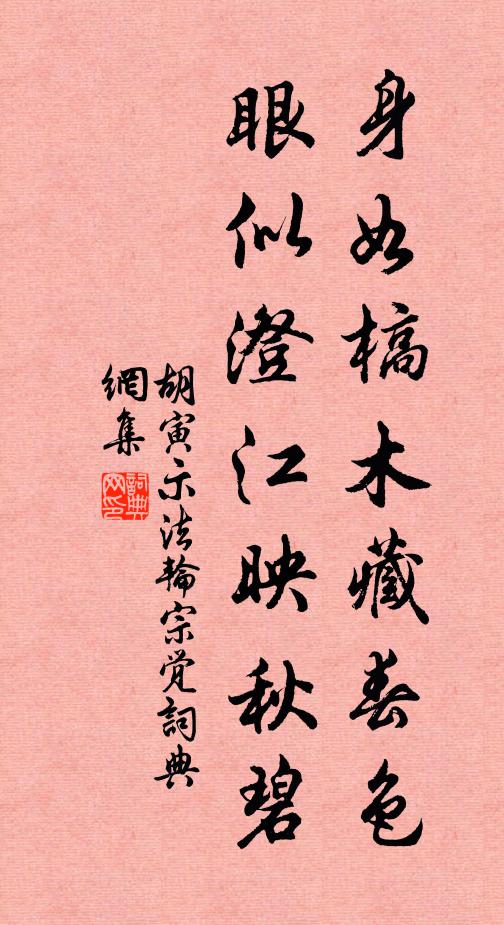 身如槁木藏春色
眼似澄江映秋碧
胡寅示法輪宗覚詞典
網集
詞典
网印